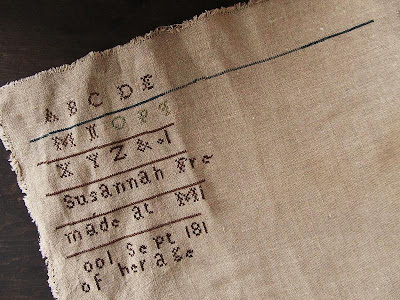 A B C D E
M N O P Q
X Y Z & . 1
Susannah Fre
made at Mi
ool Sept 181
of her age